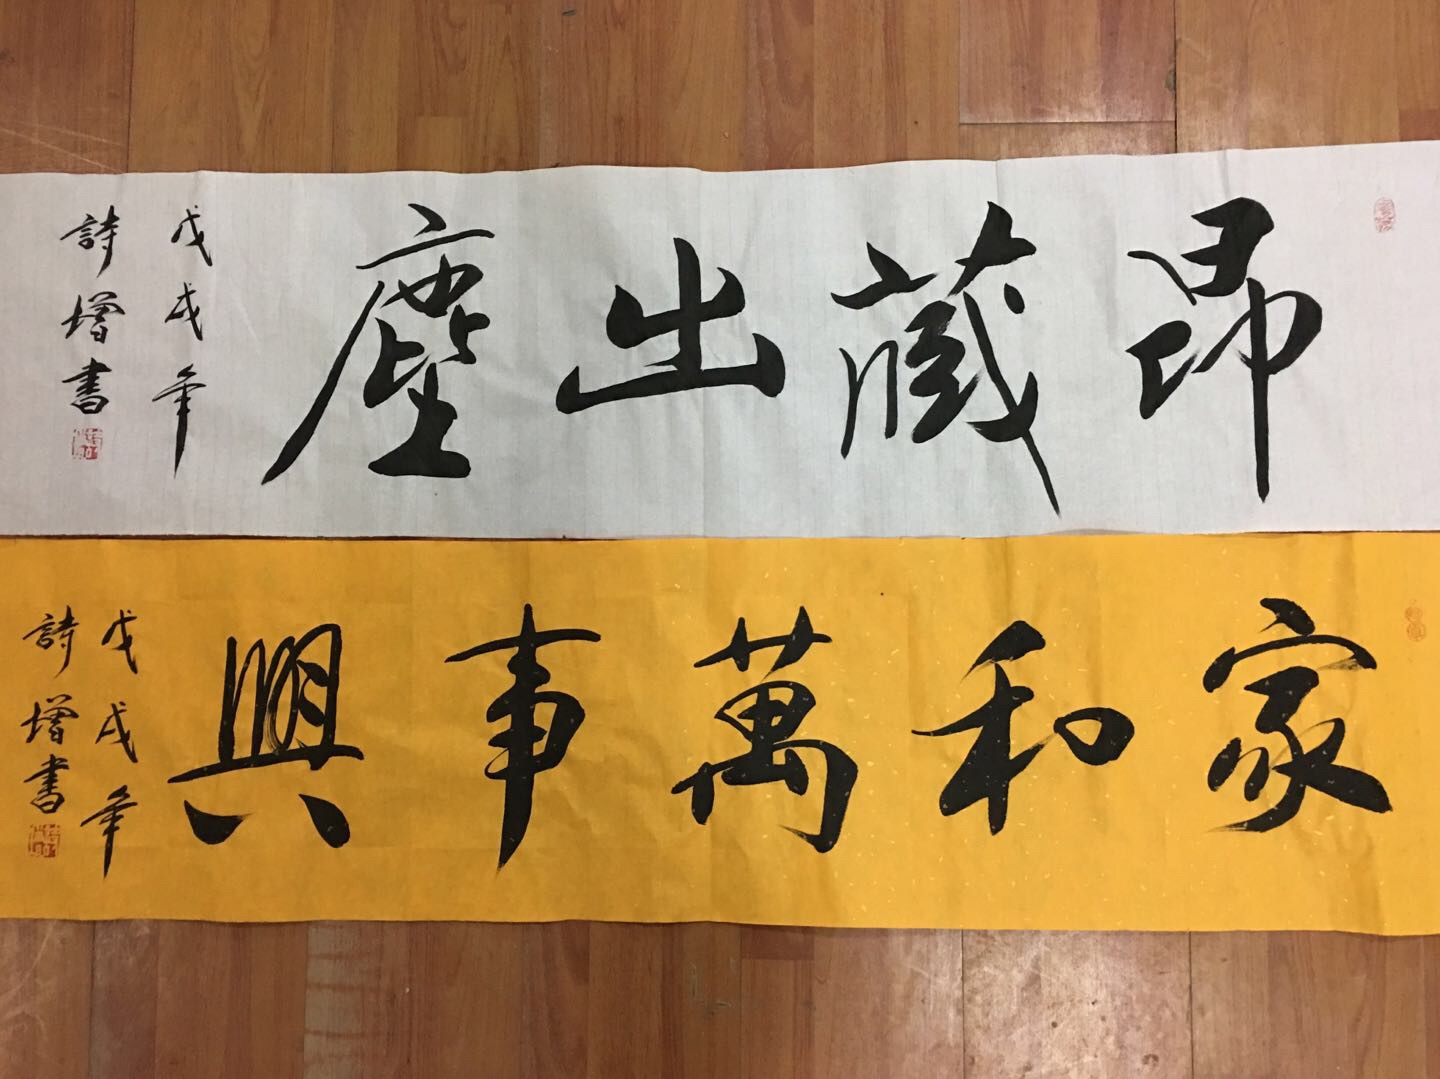 昂藏出塵
戊戌年
詩增書
家和萬事興
戊戌年
詩增書